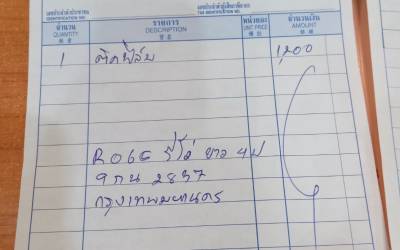 เลขประจำตัวประชาชน เลขประจำตัวผู้เสียภาษีอากร
IDENTIFICATION NO. TAX IDENTIFICATION NO.
จำนวน รายการ หน่วยละ จำนวนเงิน
QUANTITY DESCRIPTION UNIT PRICE AMOUNT
1 ติดฟิล์ม 1,200
รีโว่ ขาว 4ป
9กน 2837
กรุงเทพมหานคร